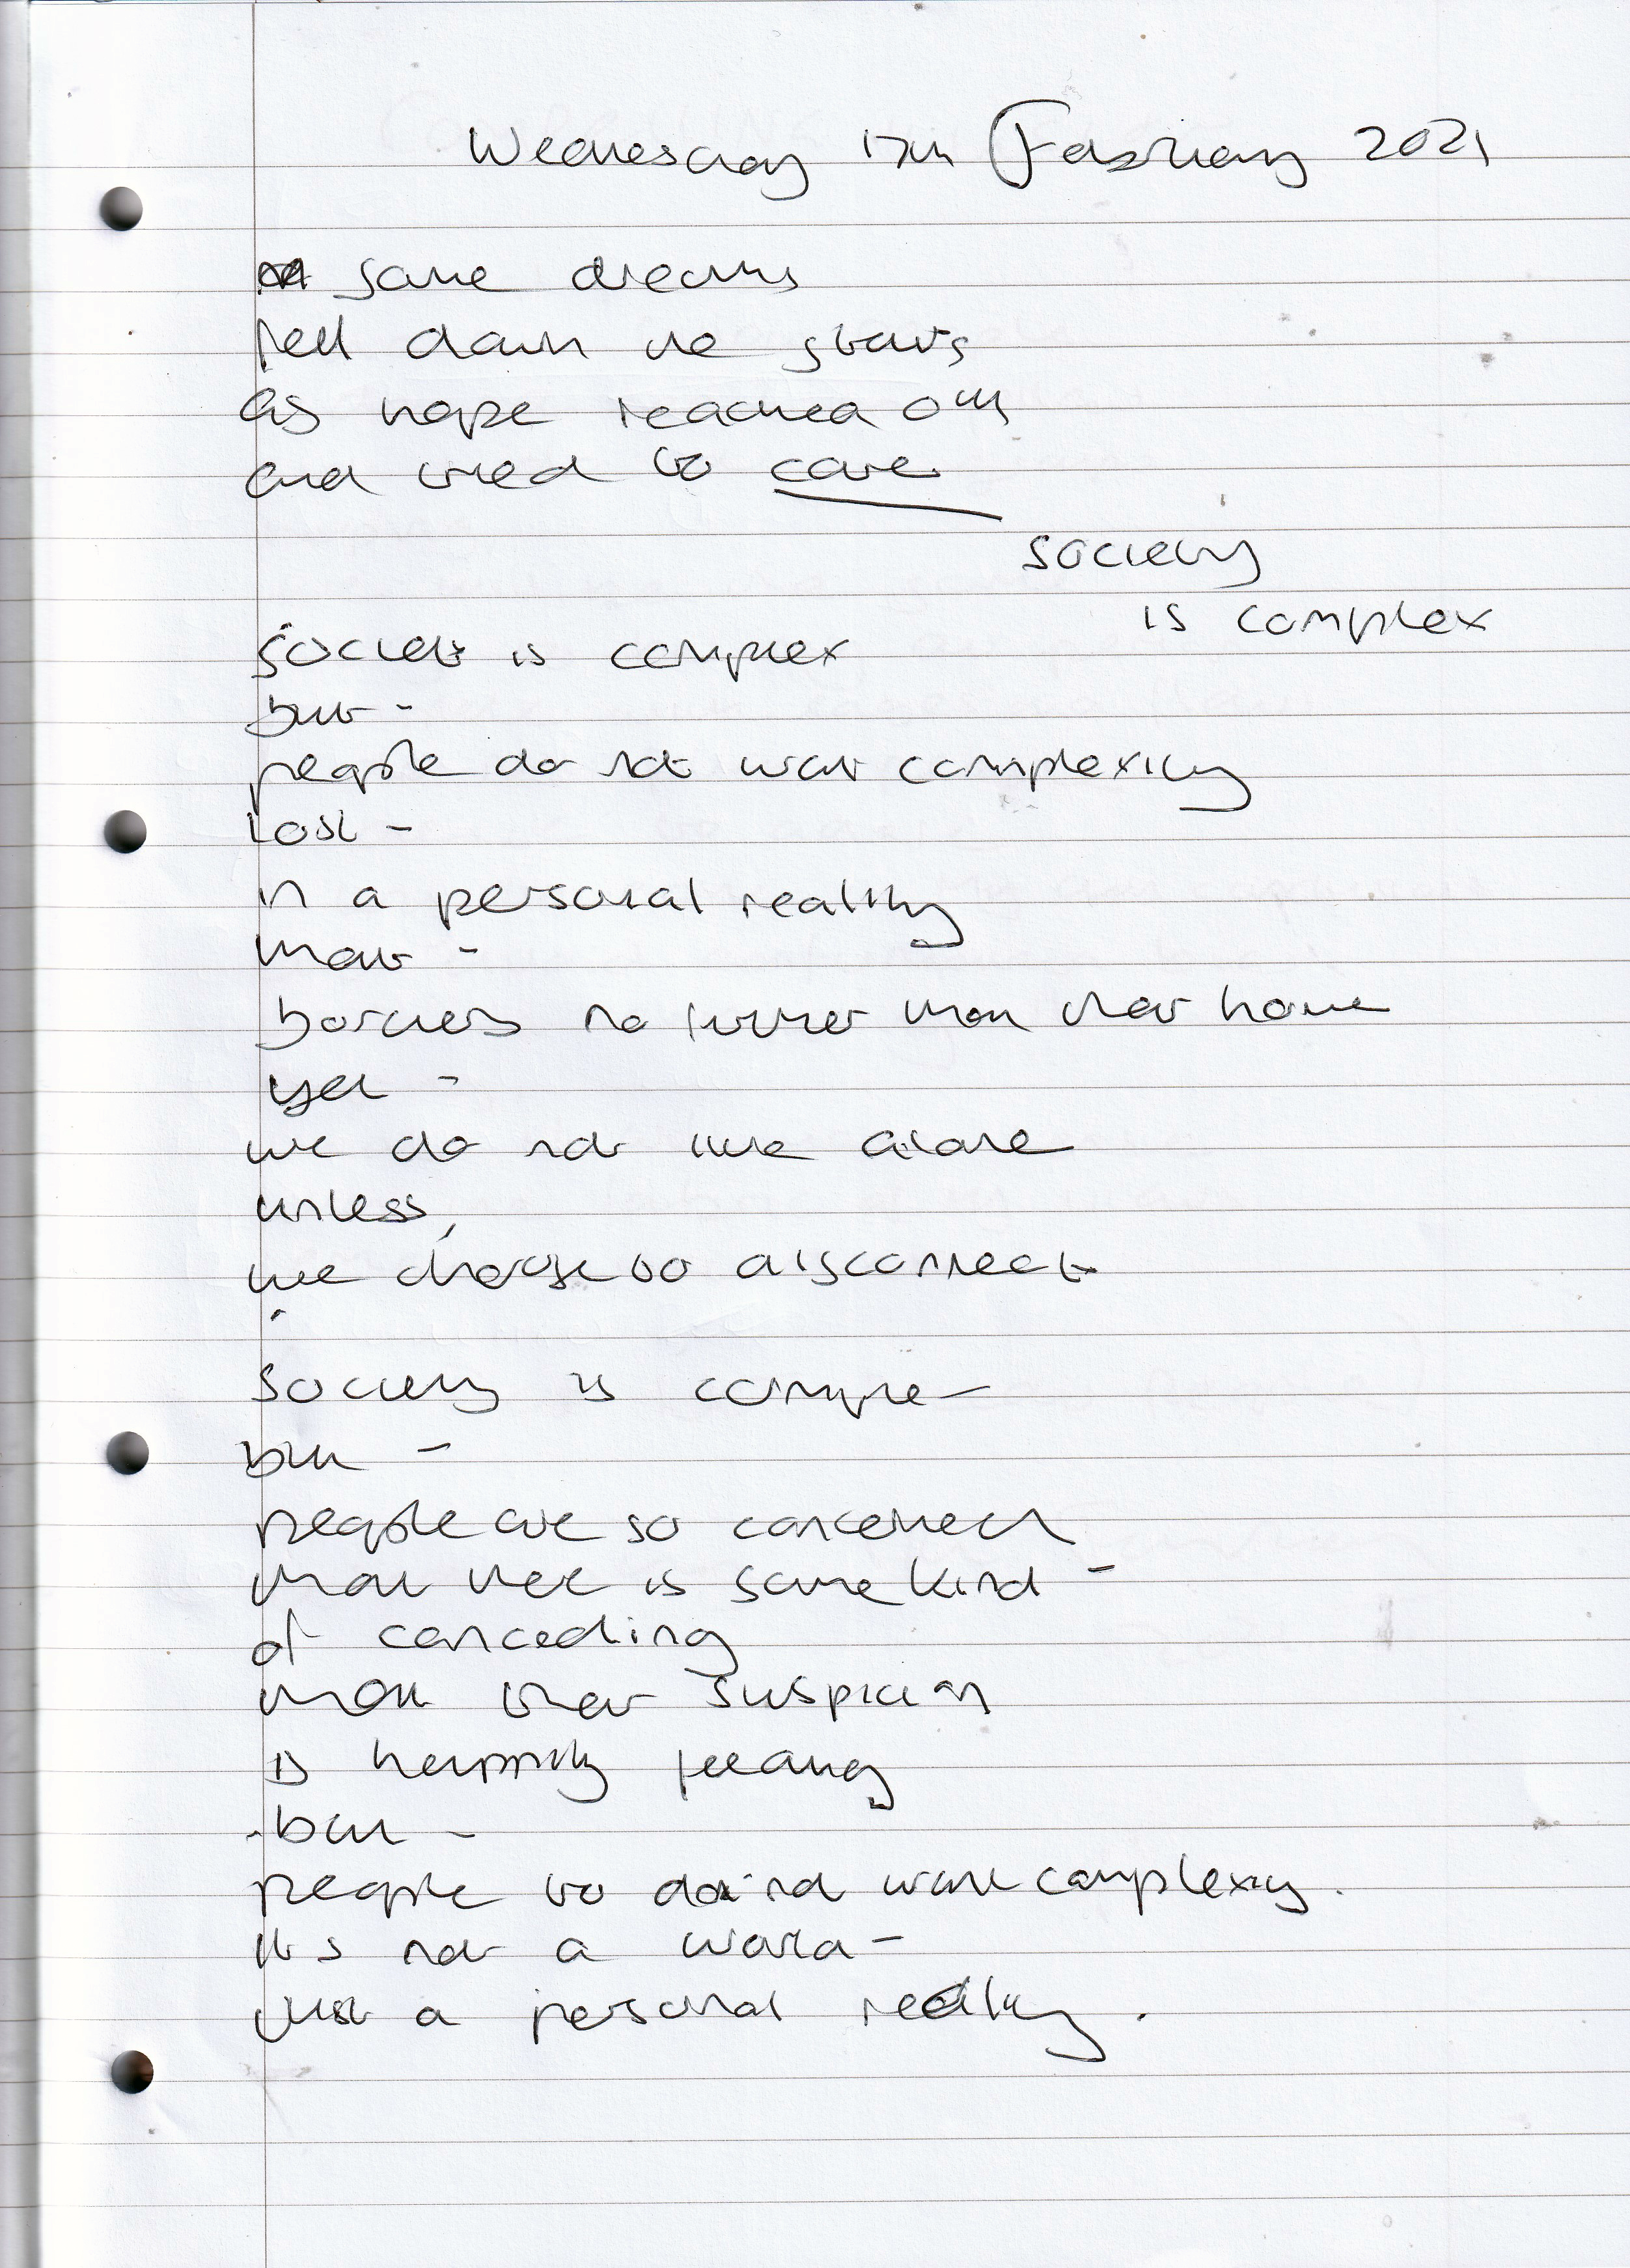 Wednesday 17th February 2021
some dreams
fell down the stairs
as hope reached out
and tried to care
society
is complex
society is complex
but -
people do not want complexity
lost -
in a personal reality
that -
borders no further than their home
yet -
we do not live alone
unless,
we choose to disconnect
society is complex
but -
people are so concerned
that there is some kind -
of conceding
that their suspicion
is happily feeding
but -
people to do not want complexity.
its not a world -
just a personal reality.